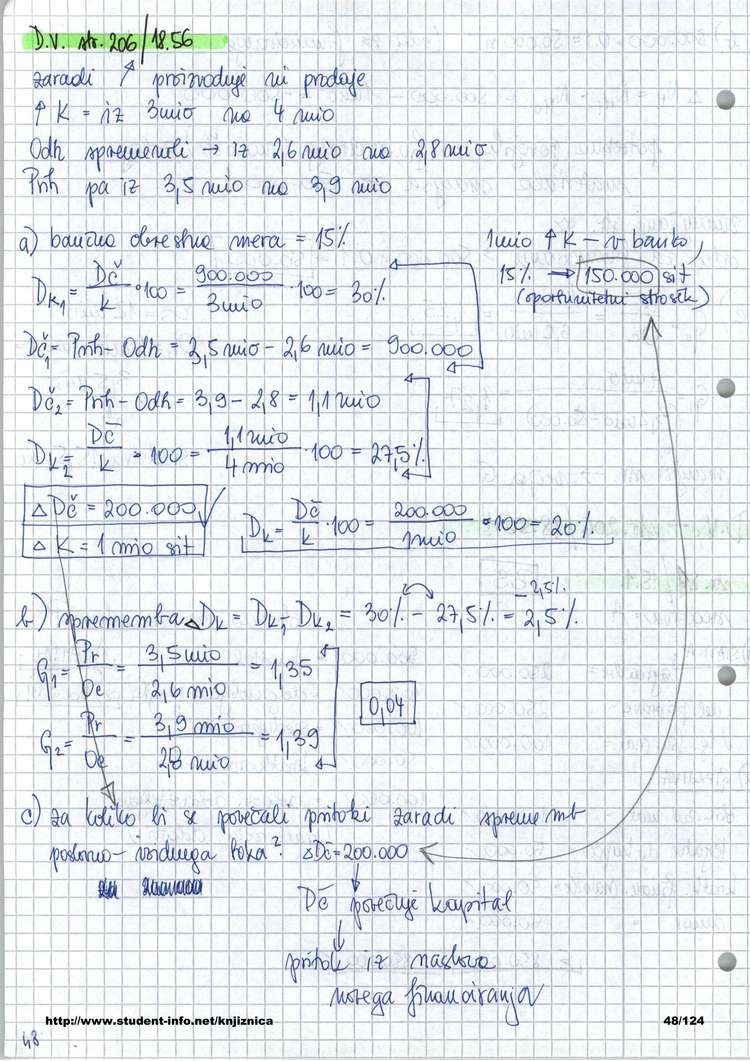 D.V. str. 206/18.56
zaradi ↑ proizvodnje in prodaje
↑ K = iz 3mio na 4 mio
Odh spremenili → iz 2,6 mio na 2,8 mio
Prih pa iz 3,5 mio na 3,9 mio
a) bančna obrestna mera = 15%
1mio ↑ K – v banko,
15% → 150.000 sit
(oportunitetni strošek)
Dk₁ = Dč/k · 100 = 900.000/3mio · 100 = 30%
Dč₁ = Prih – Odh = 3,5 mio – 2,6 mio = 900.000
Dč₂ = Prih – Odh = 3,9 – 2,8 = 1,1 mio
Dk₂ = Dč/k · 100 = 1,1 mio/4 mio · 100 = 27,5%
Δ Dč = 200.000
Δ K = 1 mio sit
Dk = Dč/k · 100 = 200.000/1mio · 100 = 20%
– 2,5%
b) sprememba Δ Dk = Dk₁ – Dk₂ = 30% – 27,5% = 2,5%
G₁ = Pr/Oc = 3,5 mio/2,6 mio = 1,35
0,04
G₂ = Pr/Oc = 3,9 mio/2,8 mio = 1,39
c) za koliko bi se povečali pritoki zaradi sprememb
poslovno – izidnega toka? Δ Dč = 200.000
Dč povečuje kapital
pritok iz naslova
novega financiranja
http://www.student-info.net/knjiznica
48/124
48